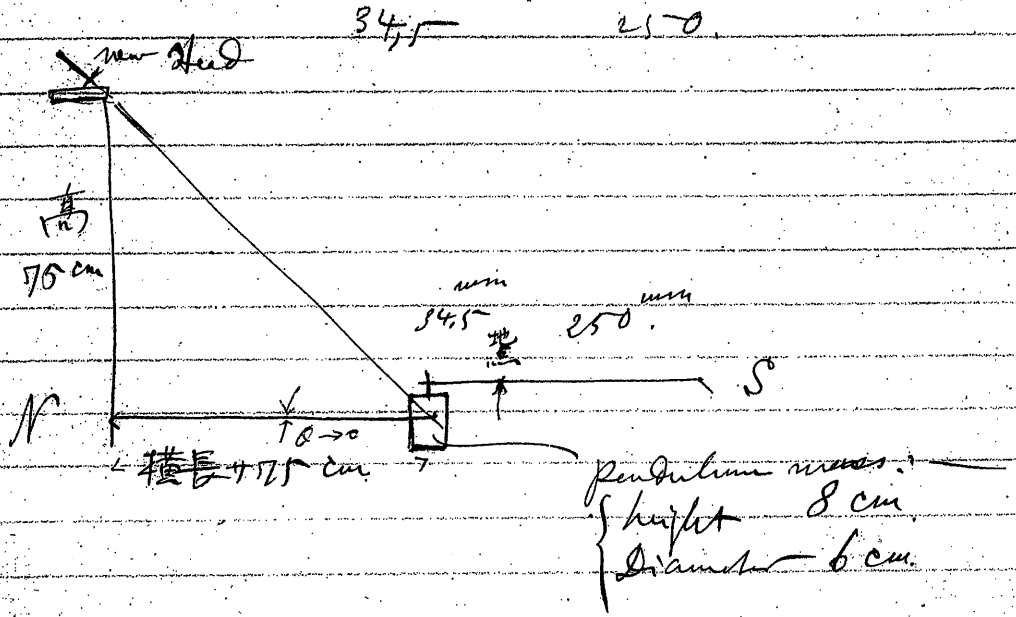 34,5 250.
new Head
高
75 cm
mm mm
34,5 250.
S
N
θ→0
横長 75 cm
pendulum mass:
height 8 cm.
Diameter 6 cm.